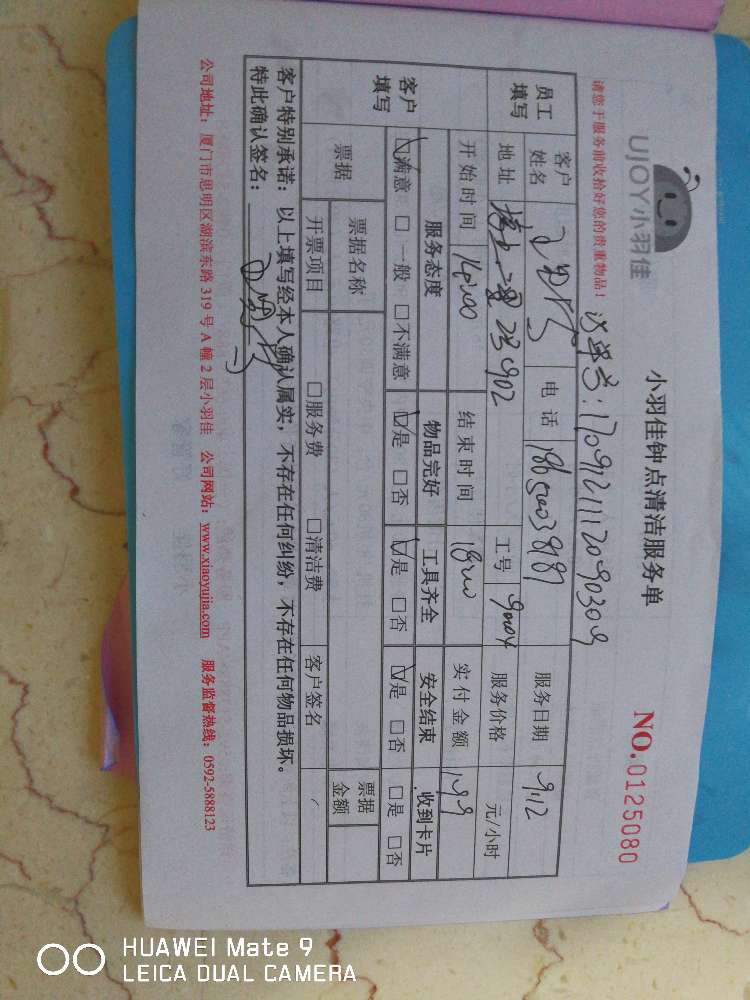 UJOY小羽佳
小羽佳钟点清洁服务单
NO.0125080
请您于服务前收拾好您的贵重物品！
员工填写
客户姓名
电话
服务日期 9.12
地址
工号
服务价格 元/小时
开始时间 14:00 结束时间 18:00 实付金额 199
客户填写
服务态度 物品完好 工具齐全 安全结束 收到卡片
☑满意 □一般 □不满意 ☑是 □否 ☑是 □否 ☑是 □否 □是 □否
票据
票据名称
票据金额
开票项目 □服务费 □清洁费 客户签名
客户特别承诺：以上填写经本人确认属实，不存在任何纠纷，不存在任何物品损坏。
特此确认签名：
公司地址：厦门市思明区湖滨东路319号A幢2层小羽佳 公司网站：www.xiaoyujia.com 服务监督热线：0592-5888123
HUAWEI Mate 9
LEICA DUAL CAMERA